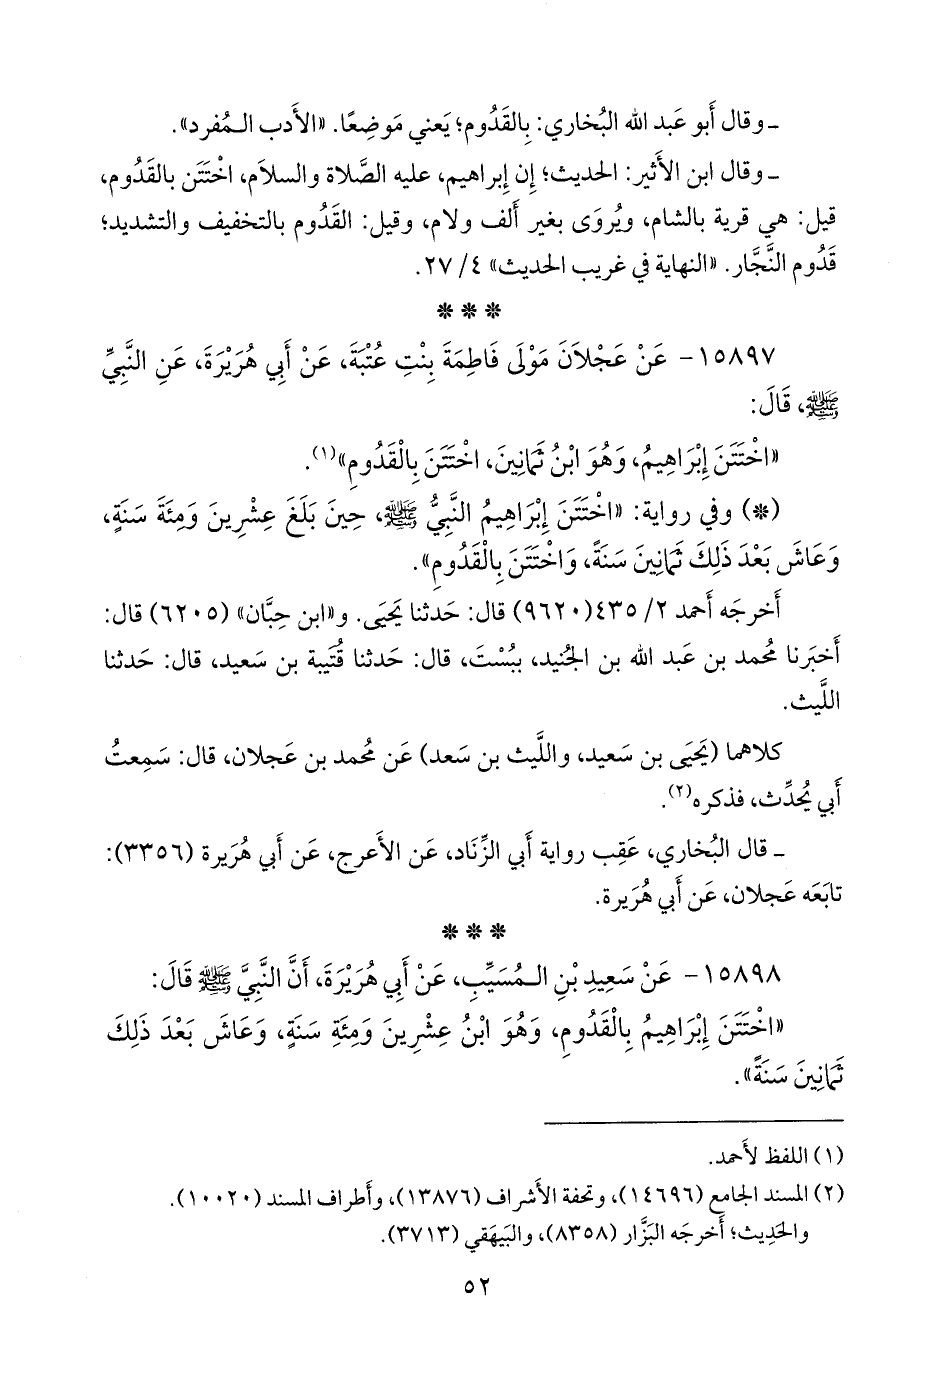 ـ وقال أَبو عَبد الله البُخاري: بِالقَدُوم؛ يَعني مَوضِعًا. «الأَدب المُفرد».
ـ وقال ابن الأَثير: الحديث؛ إِن إبراهيم، عليه الصَّلاة والسلام، اخْتَتَن بالقَدُوم،
قيل: هي قرية بالشام، ويُروَى بغير أَلف ولام، وقيل: القَدُوم بالتخفيف والتشديد؛
قَدُوم النَّجَّار. «النهاية في غريب الحديث» ٤/ ٢٧.
* * *
١٥٨٩٧- عَنْ عَجْلاَنَ مَوْلَى فَاطِمَةَ بِنْتِ عُتْبَةَ، عَنْ أَبِي هُرَيْرَةَ، عَنِ النَّبِيِّ
ﷺ، قَالَ:
«اخْتَتَنَ إِبْرَاهِيمُ، وَهُوَ ابْنُ ثَمَانِينَ، اخْتَتَنَ بِالْقَدُومِ»(١).
(*) وفي رواية: «اخْتَتَنَ إِبْرَاهِيمُ النَّبِيُّ ﷺ، حِينَ بَلَغَ عِشْرِينَ وَمِئَةَ سَنَةٍ،
وَعَاشَ بَعْدَ ذَلِكَ ثَمَانِينَ سَنَةً، وَاخْتَتَنَ بِالْقَدُومِ».
أَخرجَه أَحمد ٢/ ٤٣٥(٩٦٢٠) قال: حَدثنا يَحيَى. و«ابن حِبَّان» (٦٢٠٥) قال:
أَخبَرنا مُحمد بن عَبد الله بن الجُنيد، ببُسْتَ، قال: حَدثنا قُتَيبة بن سَعيد، قال: حَدثنا
اللَّيث.
كلاهما (يَحيَى بن سَعيد، واللَّيث بن سَعد) عَن مُحمد بن عَجلان، قال: سَمِعتُ
أَبي يُحدِّث، فذكره(٢).
ـ قال البُخاري، عَقِب رواية أَبي الزِّنَاد، عَن الأَعرج، عَن أَبي هُرَيرة (٣٣٥٦):
تابَعَه عَجلان، عَن أَبي هُرَيرة.
* * *
١٥٨٩٨- عَنْ سَعِيدِ بْنِ المُسَيِّبِ، عَنْ أَبِي هُرَيْرَةَ، أَنَّ النَّبِيَّ ﷺ قَالَ:
«اخْتَتَنَ إِبْرَاهِيمُ بِالْقَدُومِ، وَهُوَ ابْنُ عِشْرِينَ وَمِئَةِ سَنَةٍ، وَعَاشَ بَعْدَ ذَلِكَ
ثَمَانِينَ سَنَةً».
(١) اللفظ لأَحمد.
(٢) المسند الجامع (١٤٦٩٦)، وتحفة الأَشراف (١٣٨٧٦)، وأَطراف المسند (١٠٠٢٠).
والحَدِيث؛ أَخرجَه البَزَّار (٨٣٥٨)، والبَيهَقي (٣٧١٣).
٥٢